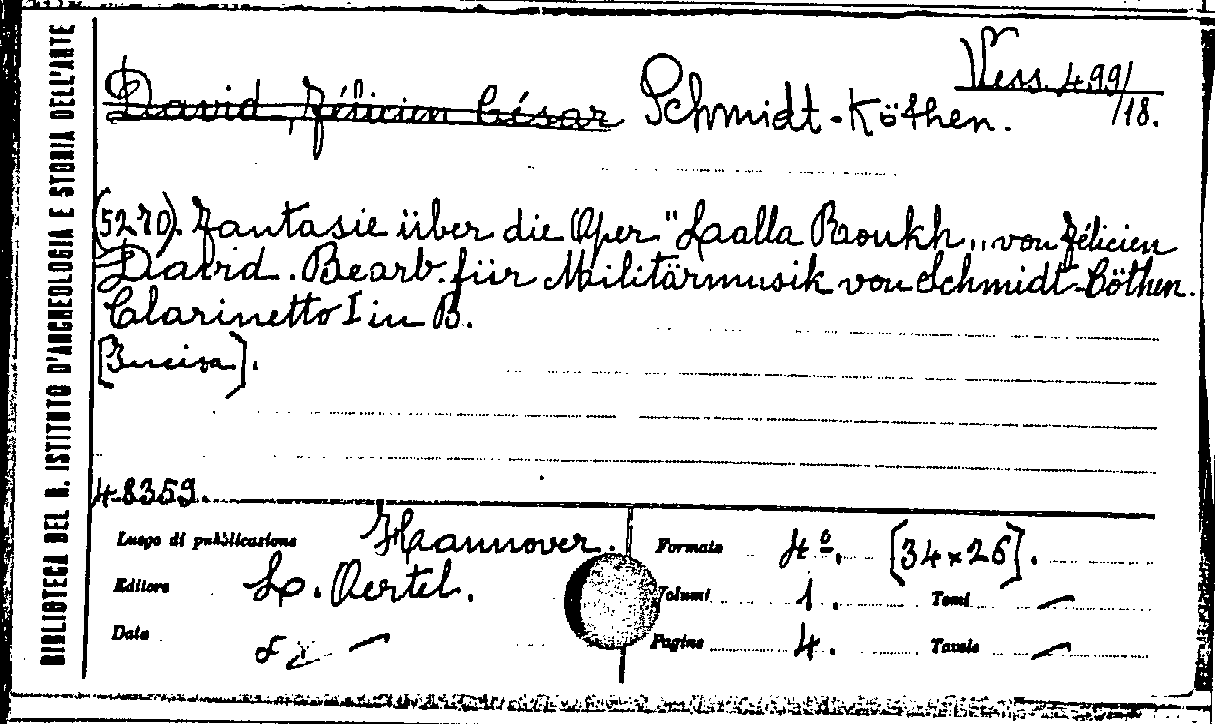 BIBLIOTECA DEL R. ISTITUTO D'ARCHEOLOGIA E STORIA DELL'ARTE
Vess. 499/18.
David, Félicien César Schmidt-Köthen.
(5270). Fantasie über die Oper "Laalla Roukh„ von Félicien
David. Bearb. für Militärmusik von Schmidt-Cöthen.
Clarinetto I in B.
[Incisa].
48359.
Luogo di pubblicazione Hannover.
Editore L. Oertel.
Data
Formato 4º. [34×26].
Volumi 1. Tomi —
Pagine 4. Tavole —